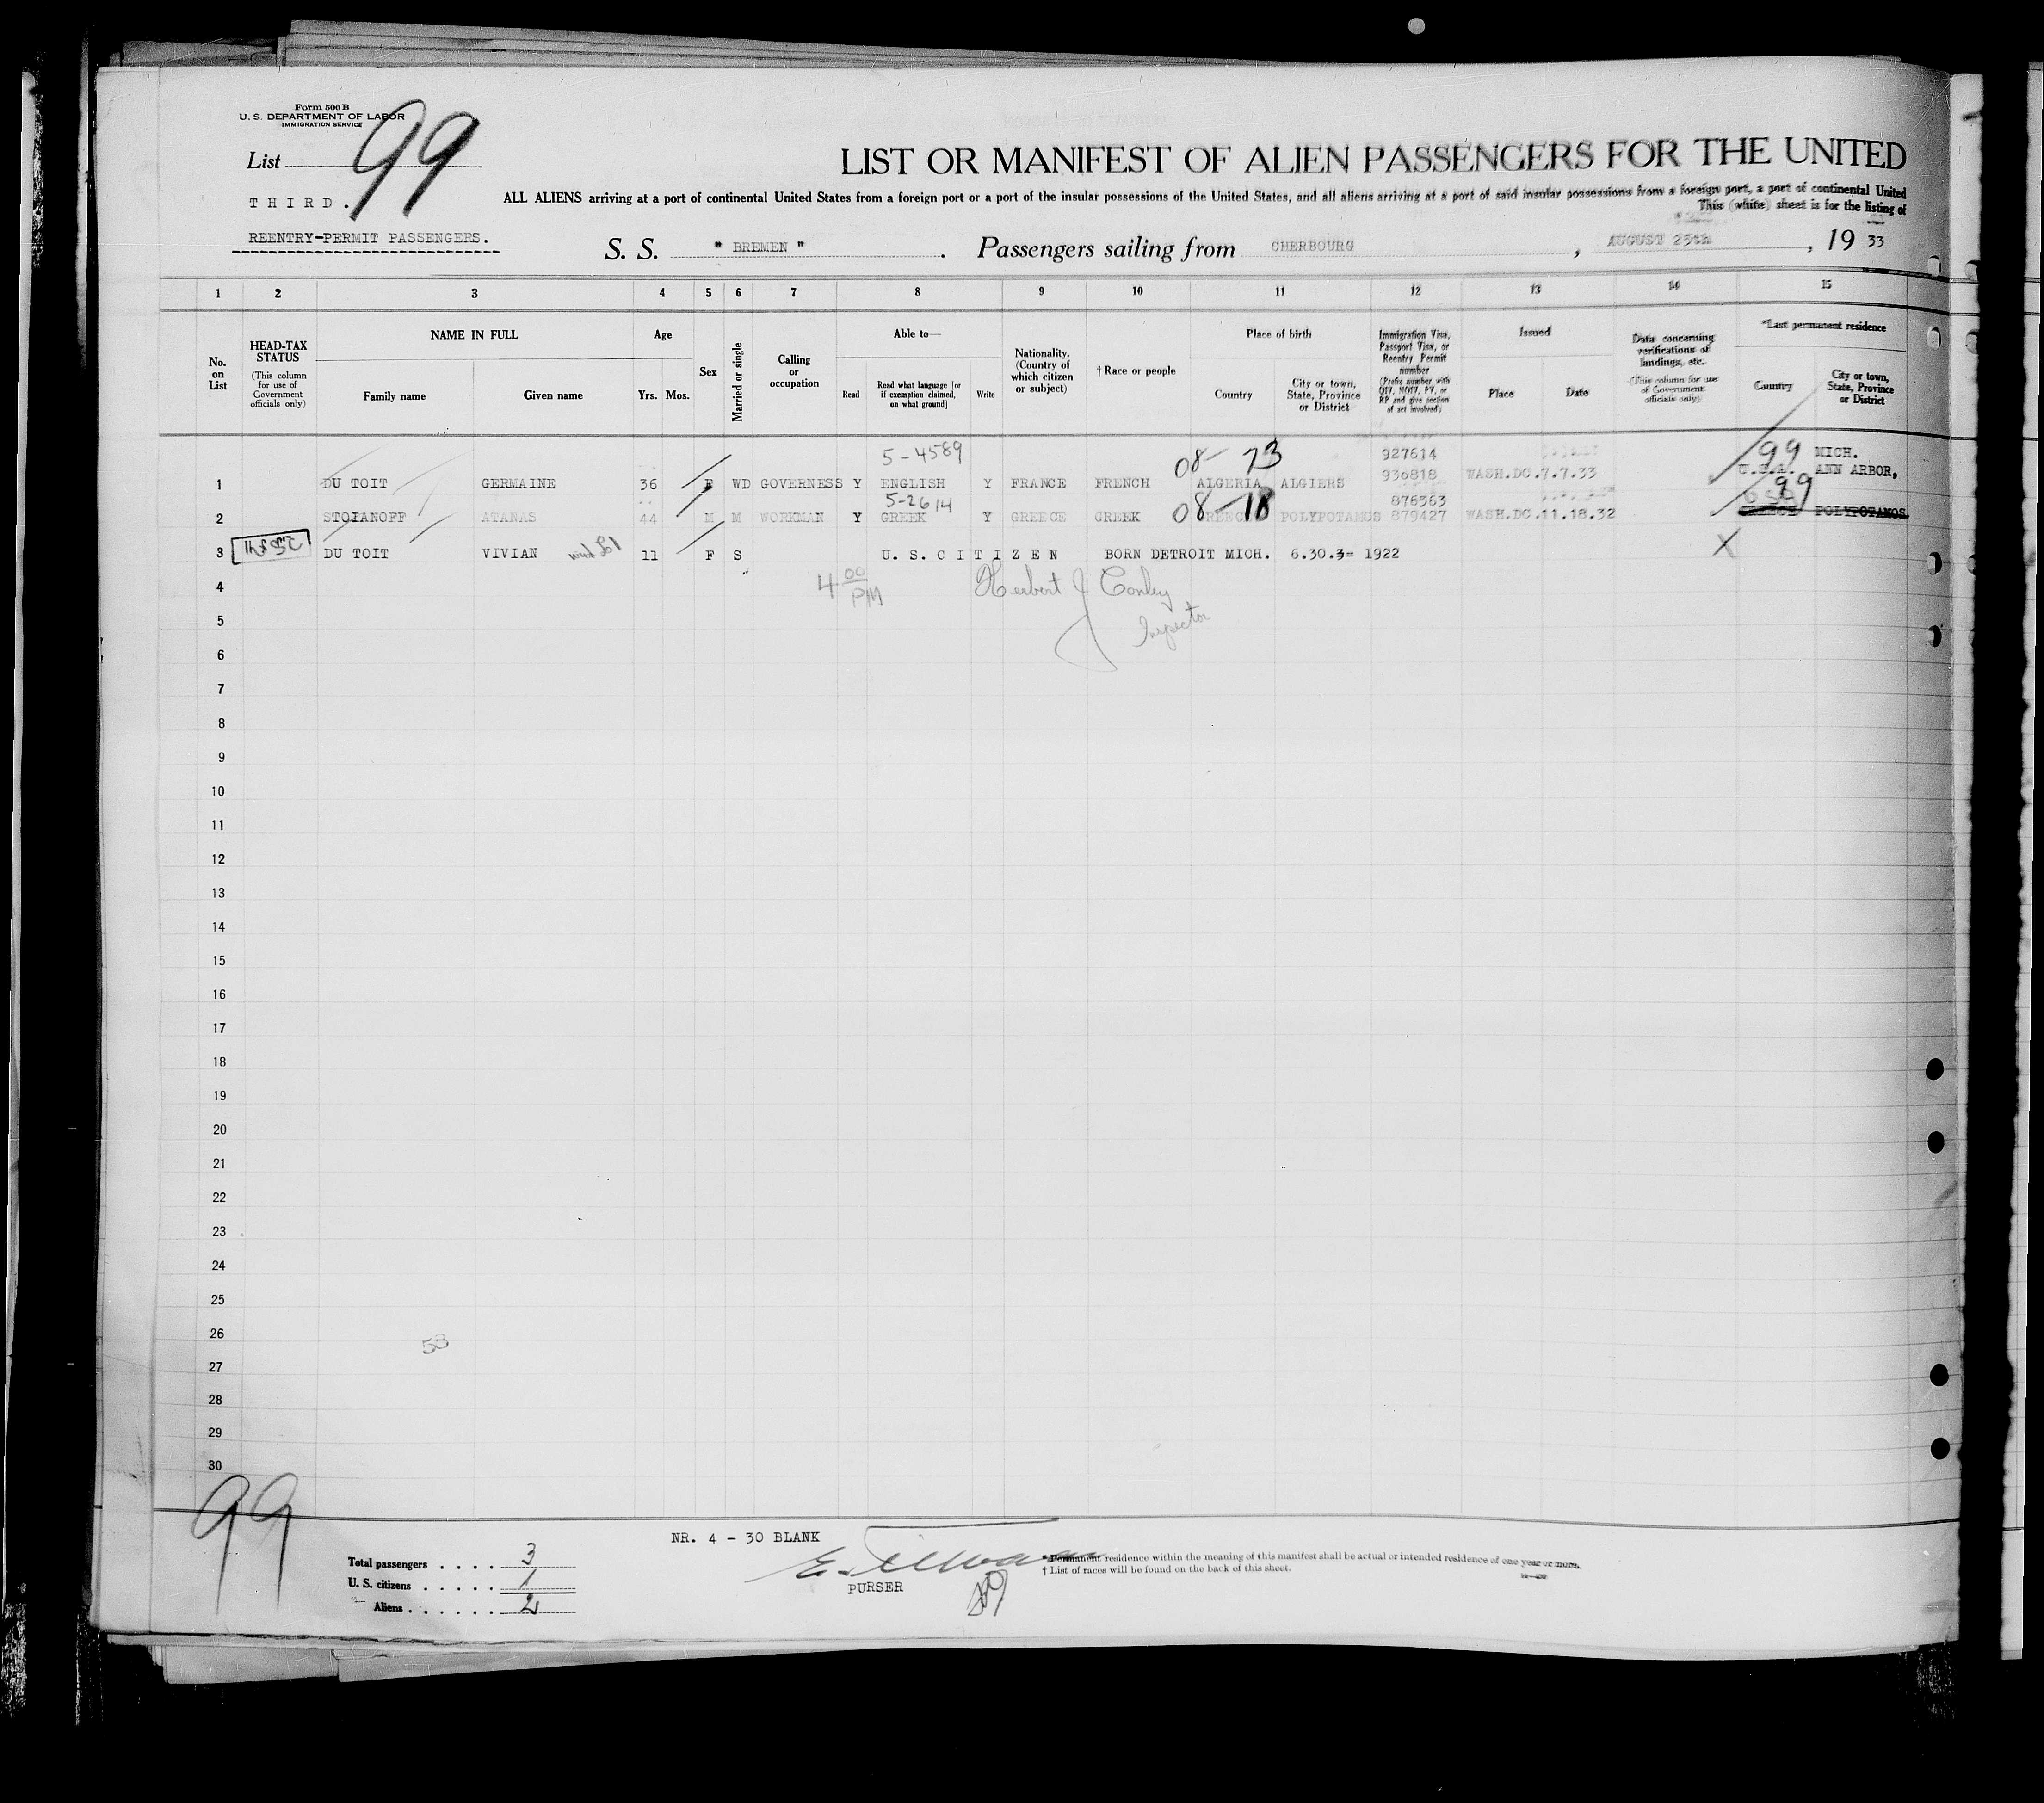 Form 500 B
U. S. DEPARTMENT OF LABOR
IMMIGRATION SERVICE
List 99
THIRD.
REENTRY-PERMIT PASSENGERS.
LIST OR MANIFEST OF ALIEN PASSENGERS FOR THE UNITED
ALL ALIENS arriving at a port of continental United States from a foreign port or a port of the insular possessions of the United States, and all aliens arriving at a port of said insular possessions from a foreign port, a port of continental United
This (white) sheet is for the listing of
S. S. " BREMEN " . Passengers sailing from CHERBOURG , AUGUST 25th , 19 33
1 2 3 4 5 6 7 8 9 10 11 12 13 14 15
No. on List
HEAD-TAX STATUS
(This column for use of Government officials only)
NAME IN FULL
Family name Given name
Age
Yrs. Mos.
Sex
Married or single
Calling or occupation
Able to—
Read
Read what language [or if exemption claimed, on what ground]
Write
Nationality. (Country of which citizen or subject)
† Race or people
Place of birth
Country
City or town, State, Province or District
Immigration Visa, Passport Visa, or Reentry Permit number
(Prefix number with QIV, NQIV, PV, or RP and give section of act involved)
Issued
Place Date
Data concerning verifications of landings, etc.
(This column for use of Government officials only)
*Last permanent residence
Country
City or town, State, Province or District
5-4589 08-73 927614 99 MICH.
1 DU TOIT GERMAINE 36 F WD GOVERNESS Y ENGLISH Y FRANCE FRENCH ALGERIA ALGIERS 930818 WASH.DC.7.7.33 U.S.A. ANN ARBOR,
5-2614 08-18 876363 USA 99
2 STOIANOFF ATANAS 44 M M WORKMAN Y GREEK Y GREECE GREEK GREECE POLYPOTAMOS 879427 WASH.DC.11.18.32 POLYPOTAMOS
3 DU TOIT VIVIAN 11 F S U. S. CITIZEN BORN DETROIT MICH. 6.30.3= 1922 X
4 4 00 PM Herbert J Conley
5 Inspector
6
7
8
9
10
11
12
13
14
15
16
17
18
19
20
21
22
23
24
25
26 53
27
28
29
30
99
NR. 4 - 30 BLANK
Total passengers . . . . 3
U. S. citizens . . . . . 1
Aliens . . . . . . 2
PURSER
*Permanent residence within the meaning of this manifest shall be actual or intended residence of one year or more.
† List of races will be found on the back of this sheet.